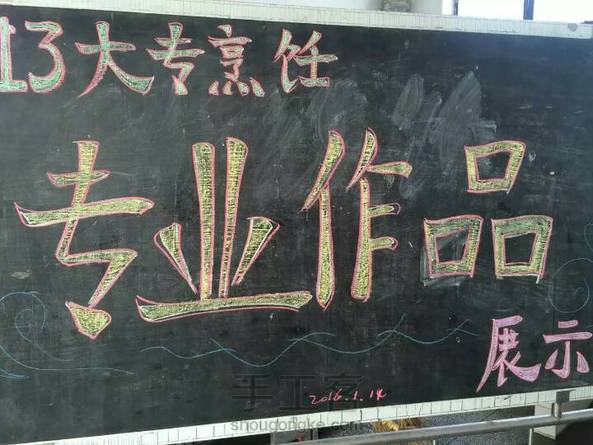 13大专烹饪
专业作品
展示
2016.1.14
手工客
shougongke.com